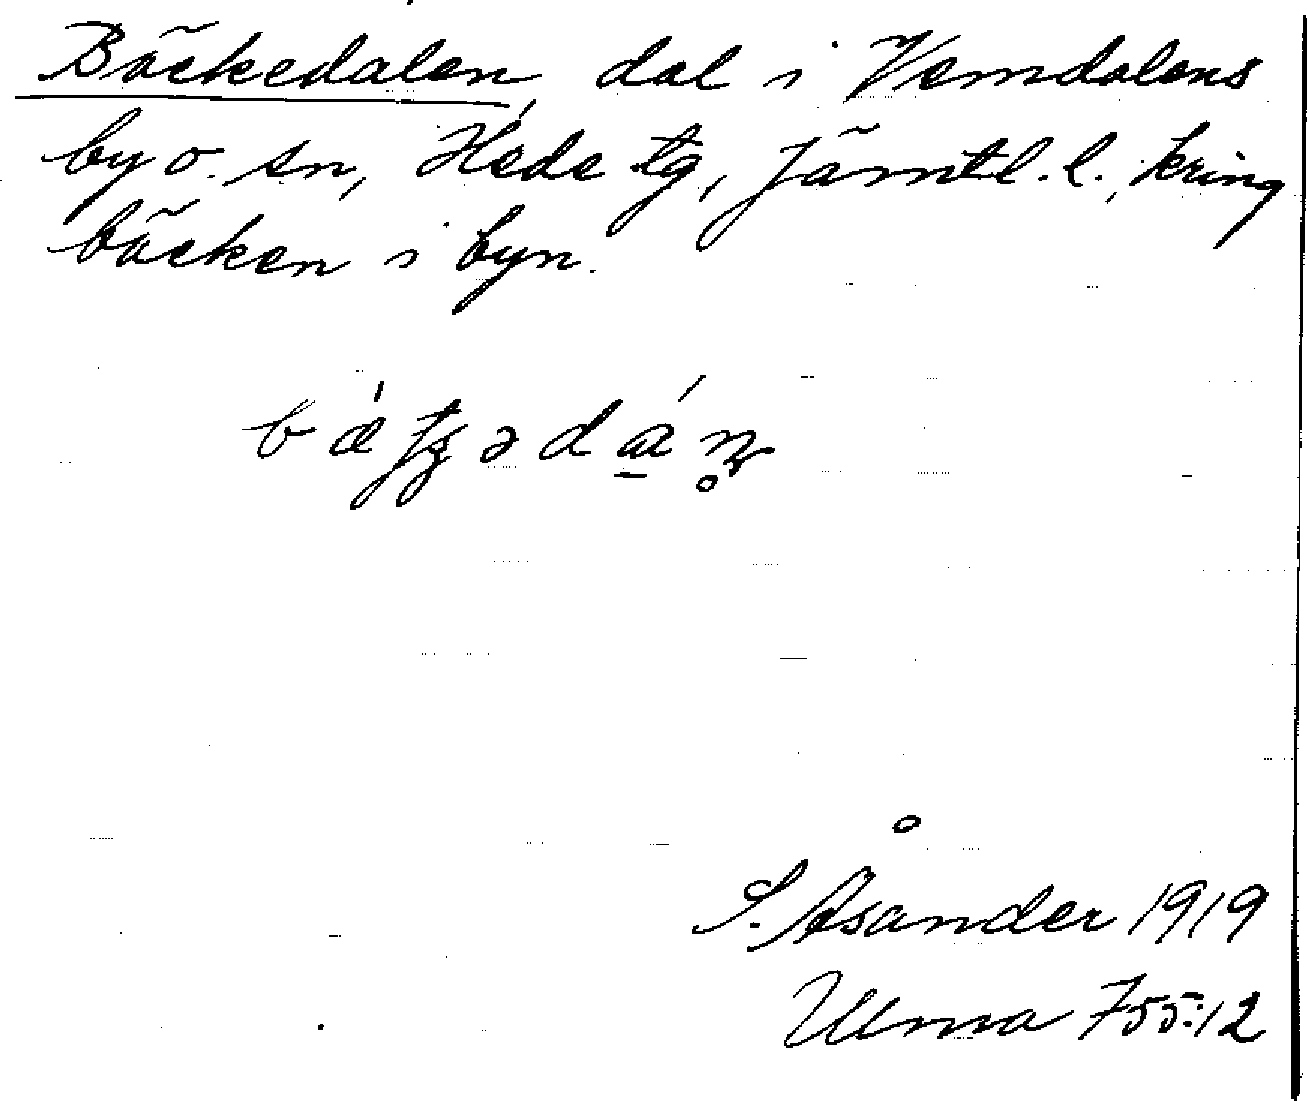 Bäckedalen, dal i Vemdalens
by o. sn, Hede tg, Jämtl. l., kring
bäcken i byn.
S. Åsander 1919
Ulma 755:12